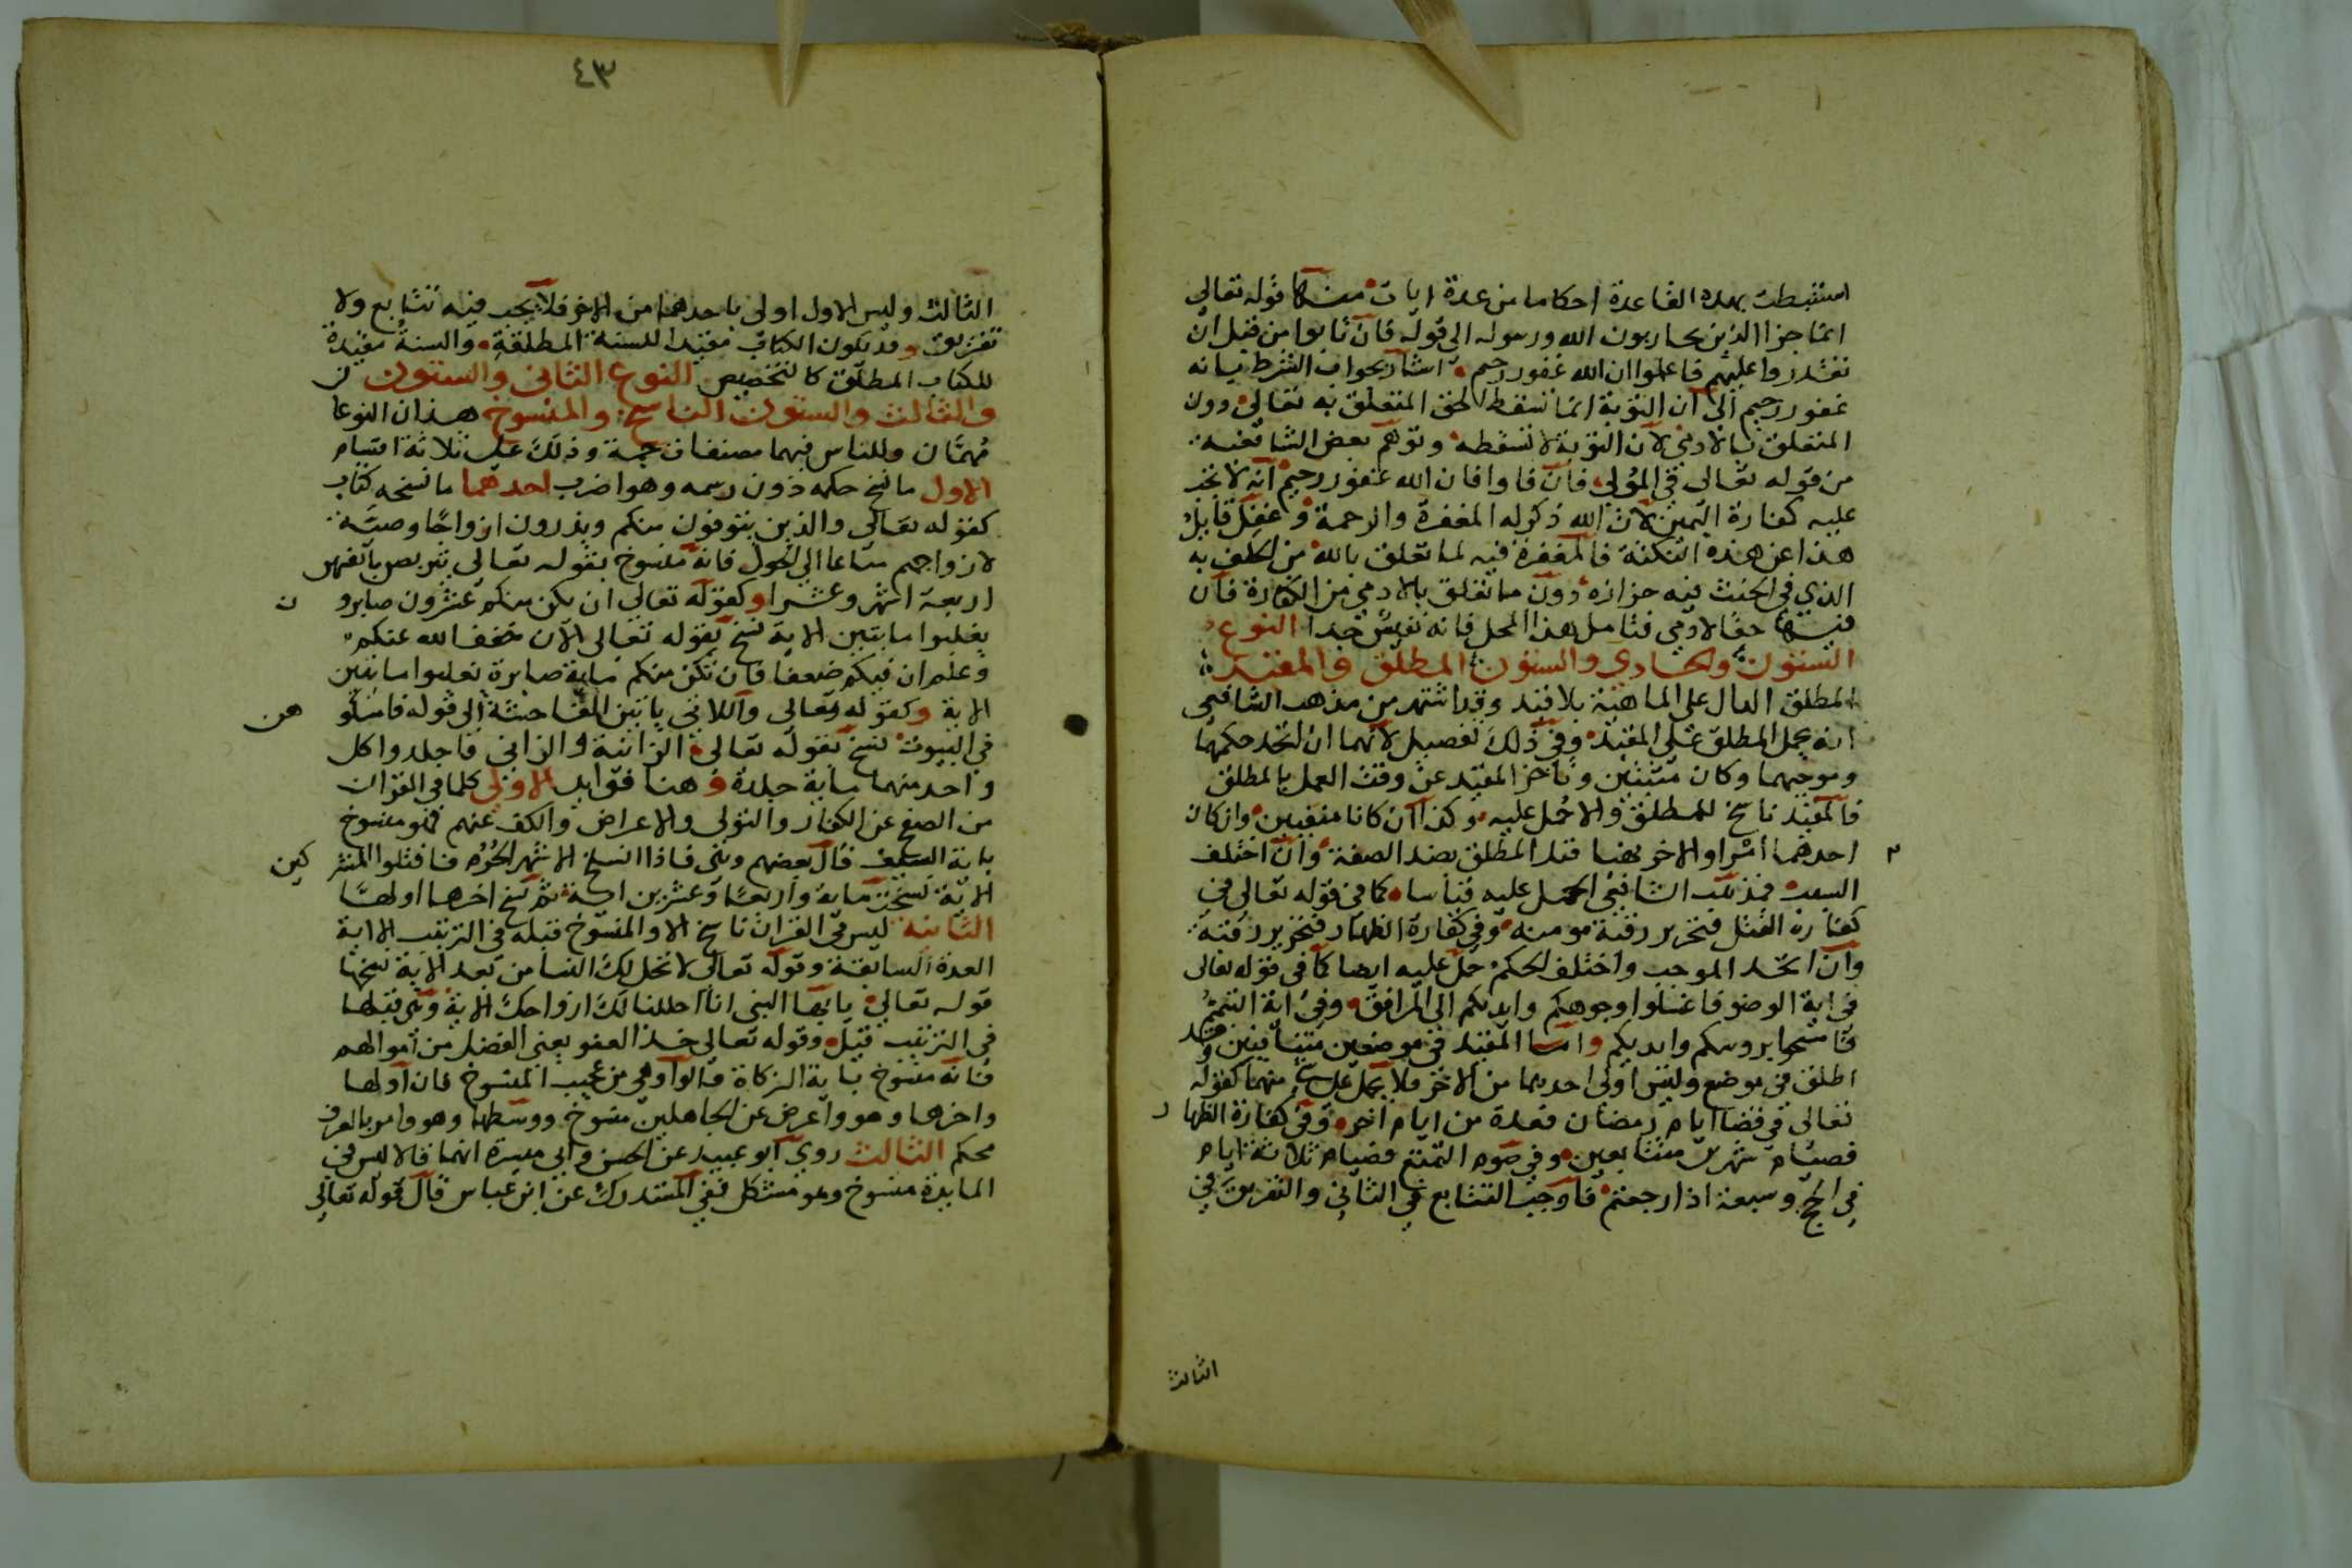 استنبطت بهذه القاعدة احكاما من عدة ايات منها قوله تعالى
انما جزا الذين يحاربون الله ورسوله الى قوله فان تابوا من قبل ان
تقدروا عليهم فاعلموا ان الله غفور رحيم اشار بجواب الشرط بانه
غفور رحيم الى ان التوبة انما تسقط الحق المتعلق به تعالى دون
المتعلق بالادمي لان التوبة لا تسقطه وتوهم بعض الشافعية
من قوله تعالى في المولى فان فاوا فان الله غفور رحيم انه لا تجب
عليه كفارة اليمين لان الله ذكر له المغفرة والرحمة وغفل قايل
هذا عن هذه النكتة فالمغفرة فيه لما تعلق بالله من الحلف به
الذي في الحنث فيه حزازة دون ما تعلق بالادمي من الكفارة فان
فيها حقا لادمي فتامل هذا المحل فانه نفيس جدا النوع
الستون والحادي والستون المطلق والمقيد
المطلق الدال على الماهية بلا قيد وقد اشتهر من مذهب الشافعي
انه يحمل المطلق على المقيد وفي ذلك تفصيل لانهما ان اتحد حكمهما
وموجبهما وكان مثبتين وتاخر المقيد عن وقت العمل بالمطلق
فالمقيد ناسخ للمطلق والا حمل عليه وكذا ان كانا منفيين وان كان
احدهما امرا والاخر نهيا قيد المطلق بضد الصفة وان اختلف
السبب فمذهب الشافعي الحمل عليه قياسا كما في قوله تعالى في
كفارة القتل فتحرير رقبة مومنة وفي كفارة الظهار فتحرير رقبة
وان اتحد الموجب واختلف الحكم حمل عليه ايضا كما في قوله تعالى
في اية الوضو فاغسلوا وجوهكم وايديكم الى المرافق وفي اية التيمم
فامسحوا بروسكم وايديكم واما المقيد في موضعين متنافيين وقد
اطلق في موضع وليس اولى احديهما من الاخر فلا يحمل على شي منهما كقوله
تعالى في قضا ايام رمضان فعدة من ايام اخر وفي كفارة الظهار
فصيام شهرين متتابعين وفي صوم التمتع فصيام ثلاثة ايام
في الحج وسبعة اذا رجعتم فاوجب التتابع في الثاني والتفريق في
الثالث
٤٣
الثالث وليس الاول اولى باحدهما من الاخر فلا يجب فيه تتابع ولا
تفريق وقد يكون الكتاب مقيدا للسنة المطلقة والسنة مقيدة
للكتاب المطلق كالتخصيص النوع الثاني والستون
والثالث والستون الناسخ والمنسوخ هذان النوعا ن
مهمان وللناس فيهما مصنفات جمة وذلك على ثلاثة اقسام
الاول ما نسخ حكمه دون رسمه وهو اضرب احدهما ما نسخه كتاب
كقوله تعالى والذين يتوفون منكم ويذرون ازواجا وصية
لازواجهم متاعا الى الحول فانه منسوخ بقوله تعالى يتربصن بانفسهن
اربعة اشهر وعشرا وكقوله تعالى ان يكن منكم عشرون صابرو ن
يغلبوا مايتين الاية نسخ بقوله تعالى الان خفف الله عنكم
وعلم ان فيكم ضعفا فان تكن منكم ماية صابرة يغلبوا مايتين
الاية وكقوله تعالى واللاتي ياتين الفاحشة الى قوله فامسكو هن
في البيوت نسخ بقوله تعالى الزانية والزاني فاجلدوا كل
واحد منهما ماية جلدة وهنا فوايد الاولى كلما في القران
من الصفح عن الكفار والتولي والاعراض والكف عنهم فهو منسوخ
باية السيف قال بعضهم وهي فاذا انسلخ الاشهر الحرم فاقتلوا المشر كين
الاية نسخت ماية واربعا وعشرين اية ثم نسخ اخرها اولها
الثانية ليس في القران ناسخ الا والمنسوخ قبله في الترتيب الا اية
العدة السابقة وقوله تعالى لا تحل لك النسا من بعد الاية نسخها
قوله تعالى يا ايها النبي انا احللنا لك ازواجك الاية وهي قبلها
في الترتيب قيل وقوله تعالى خذ العفو يعني الفضل من اموالهم
فانه منسوخ باية الزكاة قالوا وهي من عجيب المنسوخ فان اولها
واخرها وهو واعرض عن الجاهلين منسوخ ووسطها وهو وامر بالعرف
محكم الثالث روى ابو عبيد عن الحسن وابي ميسرة انهما قالا ليس في
المايدة منسوخ وهو مشكل ففي المستدرك عن ابن عباس قال قوله تعالى